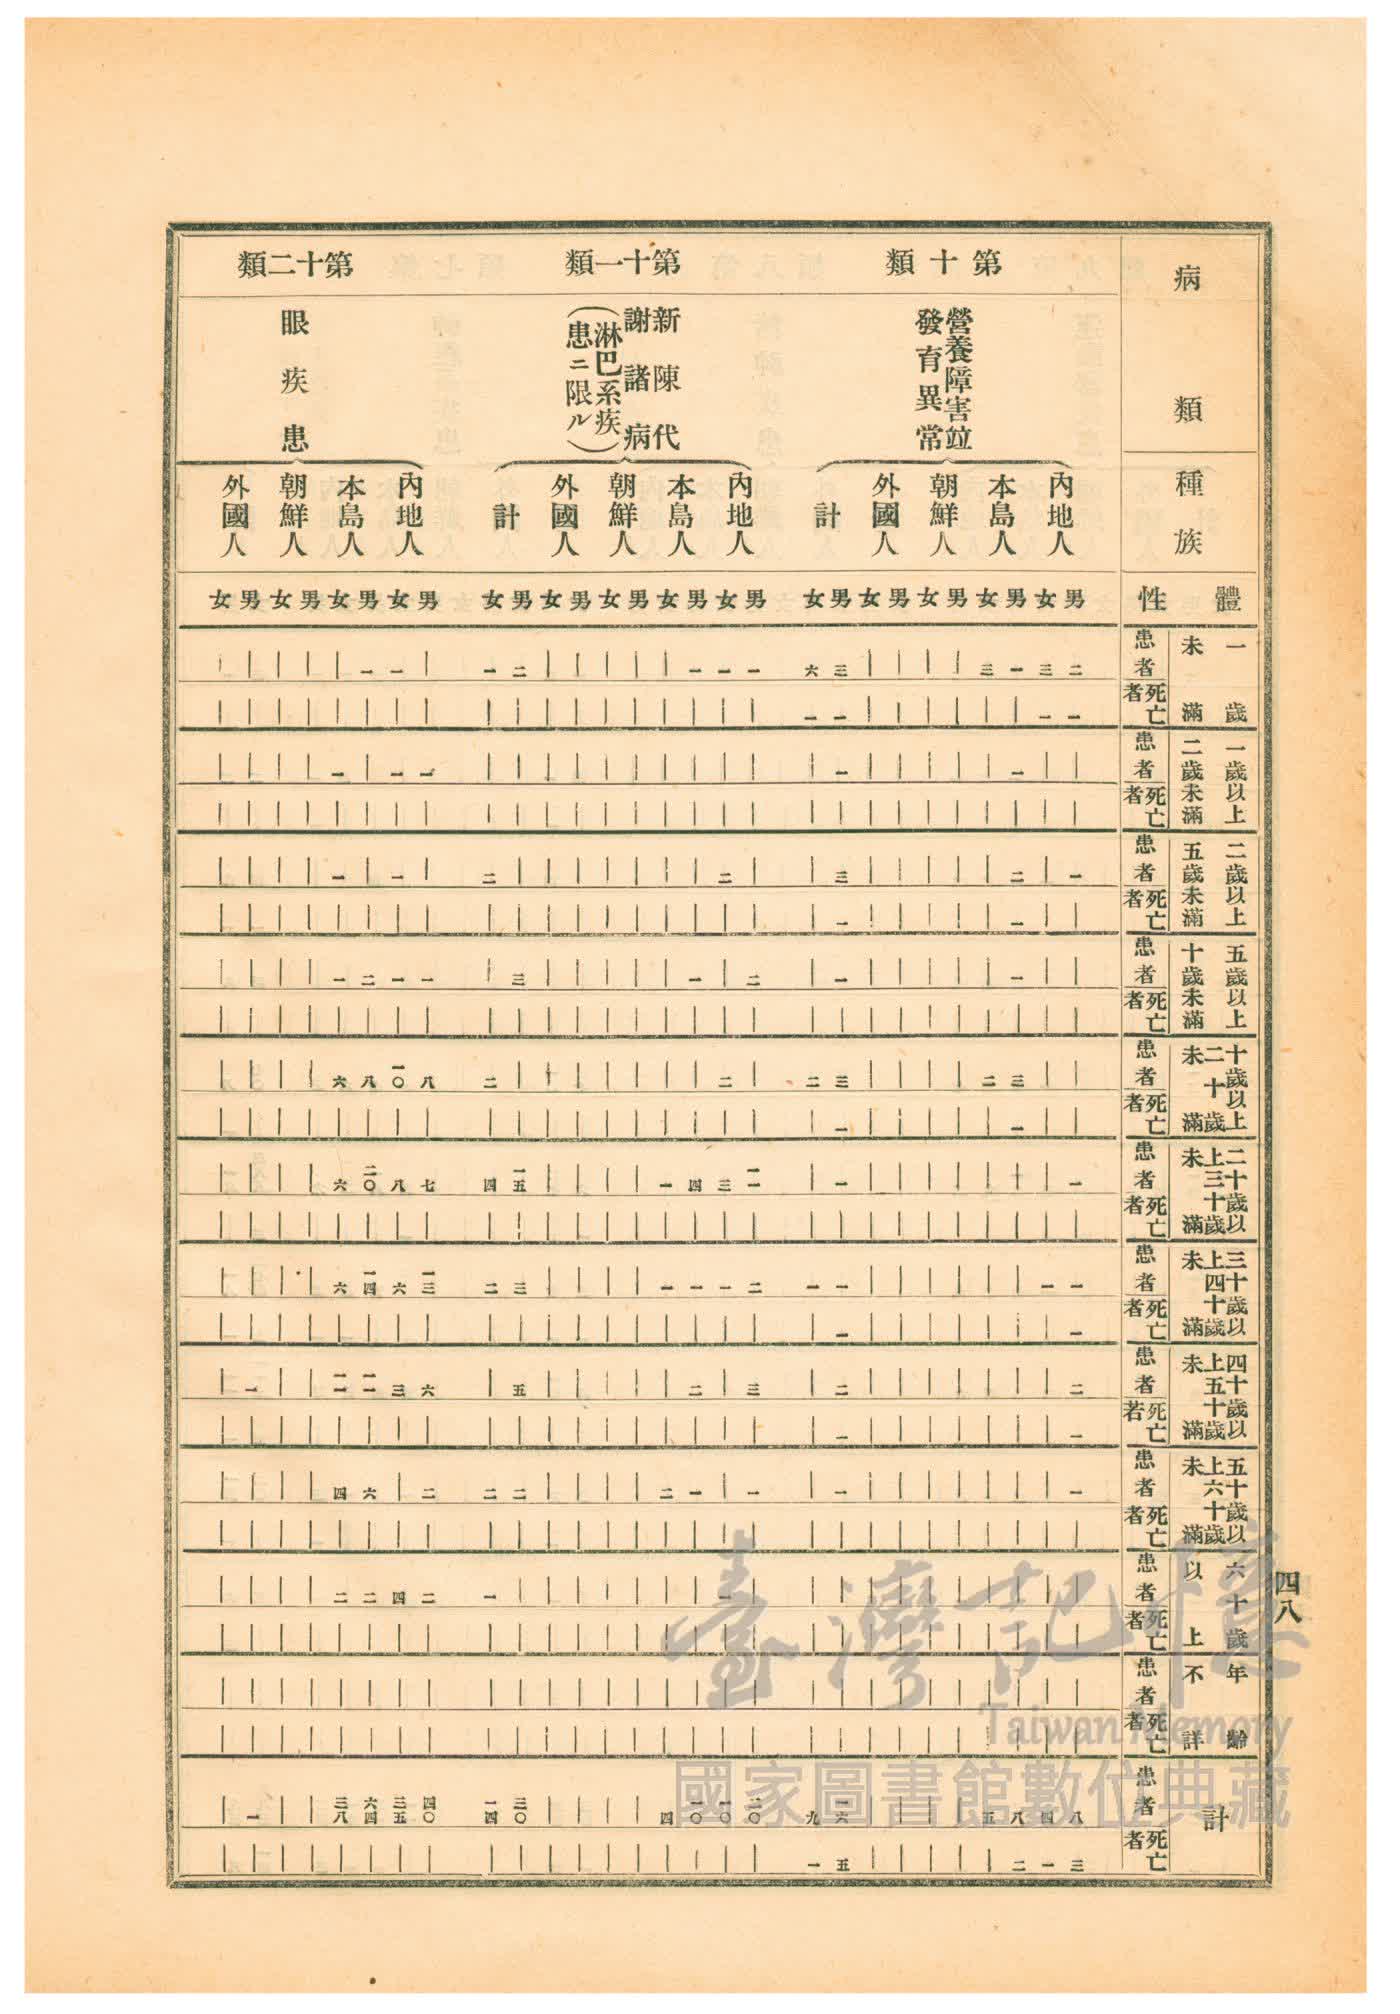 病類 第十類 第十一類 第十二類
營養障害竝
發育異常
新陳代
謝諸病
(淋巴系疾
患ニ限ル)
眼疾患
種族 內地人 本島人 朝鮮人 外國人 計 內地人 本島人 朝鮮人 外國人 計 內地人 本島人 朝鮮人 外國人
體性 男 女 男 女 男 女 男 女 男 女 男 女 男 女 男 女 男 女 男 女 男 女 男 女 男 女 男 女
一歲未滿
患者 二 三 一 三 ｜ ｜ ｜ ｜ 三 六 一 一 一 ｜ ｜ ｜ ｜ ｜ 二 一 ｜ 一 一 ｜ ｜ ｜ ｜ ｜
死亡者 一 一 ｜ ｜ ｜ ｜ ｜ ｜ 一 一 ｜ ｜ ｜ ｜ ｜ ｜ ｜ ｜ ｜ ｜ ｜ ｜ ｜ ｜ ｜ ｜ ｜ ｜
一歲以上二歲未滿
患者 ｜ ｜ 一 ｜ ｜ ｜ ｜ ｜ 一 ｜ ｜ ｜ ｜ ｜ ｜ ｜ ｜ ｜ ｜ ｜ 一 一 ｜ 一 ｜ ｜ ｜ ｜
死亡者 ｜ ｜ ｜ ｜ ｜ ｜ ｜ ｜ ｜ ｜ ｜ ｜ ｜ ｜ ｜ ｜ ｜ ｜ ｜ ｜ ｜ ｜ ｜ ｜ ｜ ｜ ｜ ｜
二歲以上五歲未滿
患者 一 ｜ 二 ｜ ｜ ｜ ｜ ｜ 三 ｜ ｜ 二 ｜ ｜ ｜ ｜ ｜ ｜ ｜ 二 ｜ 一 ｜ 一 ｜ ｜ ｜ ｜
死亡者 ｜ ｜ 一 ｜ ｜ ｜ ｜ ｜ 一 ｜ ｜ ｜ ｜ ｜ ｜ ｜ ｜ ｜ ｜ ｜ ｜ ｜ ｜ ｜ ｜ ｜ ｜ ｜
五歲以上十歲未滿
患者 ｜ ｜ 一 ｜ ｜ ｜ ｜ ｜ 一 ｜ 二 ｜ 一 ｜ ｜ ｜ ｜ ｜ 三 ｜ 一 一 二 一 ｜ ｜ ｜ ｜
死亡者 ｜ ｜ ｜ ｜ ｜ ｜ ｜ ｜ ｜ ｜ ｜ ｜ ｜ ｜ ｜ ｜ ｜ ｜ ｜ ｜ ｜ ｜ ｜ ｜ ｜ ｜ ｜ ｜
十歲以上二十歲未滿
患者 ｜ ｜ 三 二 ｜ ｜ ｜ ｜ 三 二 ｜ 二 ｜ ｜ ｜ ｜ ｜ ｜ ｜ 二 八 一〇 八 六 ｜ ｜ ｜ ｜
死亡者 ｜ ｜ 一 ｜ ｜ ｜ ｜ ｜ 一 ｜ ｜ ｜ ｜ ｜ ｜ ｜ ｜ ｜ ｜ ｜ ｜ ｜ ｜ ｜ ｜ ｜ ｜ ｜
二十歲以上三十歲未滿
患者 一 ｜ ｜ ｜ ｜ ｜ ｜ ｜ 一 ｜ 一一 三 四 一 ｜ ｜ ｜ ｜ 一五 四 七 八 二〇 六 ｜ ｜ ｜ ｜
死亡者 ｜ ｜ ｜ ｜ ｜ ｜ ｜ ｜ ｜ ｜ ｜ ｜ ｜ ｜ ｜ ｜ ｜ ｜ ｜ ｜ ｜ ｜ ｜ ｜ ｜ ｜ ｜ ｜
三十歲以上四十歲未滿
患者 一 一 ｜ ｜ ｜ ｜ ｜ ｜ 一 一 二 一 一 一 ｜ ｜ ｜ ｜ 三 二 一三 六 一四 六 ｜ ｜ ｜ ｜
死亡者 一 ｜ ｜ ｜ ｜ ｜ ｜ ｜ 一 ｜ ｜ ｜ ｜ ｜ ｜ ｜ ｜ ｜ ｜ ｜ ｜ ｜ ｜ ｜ ｜ ｜ ｜ ｜
四十歲以上五十歲未滿
患者 二 ｜ ｜ ｜ ｜ ｜ ｜ ｜ 二 ｜ 三 ｜ 二 ｜ ｜ ｜ ｜ ｜ 五 ｜ 六 三 一一 一一 ｜ ｜ 一 ｜
死亡若 一 ｜ ｜ ｜ ｜ ｜ ｜ ｜ 一 ｜ ｜ ｜ ｜ ｜ ｜ ｜ ｜ ｜ ｜ ｜ ｜ ｜ ｜ ｜ ｜ ｜ ｜ ｜
五十歲以上六十歲未滿
患者 一 ｜ ｜ ｜ ｜ ｜ ｜ ｜ 一 ｜ 一 ｜ 一 二 ｜ ｜ ｜ ｜ 二 二 二 ｜ 六 四 ｜ ｜ ｜ ｜
死亡者 ｜ ｜ ｜ ｜ ｜ ｜ ｜ ｜ ｜ ｜ ｜ ｜ ｜ ｜ ｜ ｜ ｜ ｜ ｜ ｜ ｜ ｜ ｜ ｜ ｜ ｜ ｜ ｜
六十歲以上
患者 ｜ ｜ ｜ ｜ ｜ ｜ ｜ ｜ ｜ ｜ ｜ 一 ｜ ｜ ｜ ｜ ｜ ｜ ｜ 一 二 四 二 二 ｜ ｜ ｜ ｜
死亡者 ｜ ｜ ｜ ｜ ｜ ｜ ｜ ｜ ｜ ｜ ｜ ｜ ｜ ｜ ｜ ｜ ｜ ｜ ｜ ｜ ｜ ｜ ｜ ｜ ｜ ｜ ｜ ｜
年齡不詳
患者 ｜ ｜ ｜ ｜ ｜ ｜ ｜ ｜ ｜ ｜ ｜ ｜ ｜ ｜ ｜ ｜ ｜ ｜ ｜ ｜ ｜ ｜ ｜ ｜ ｜ ｜ ｜ ｜
死亡者 ｜ ｜ ｜ ｜ ｜ ｜ ｜ ｜ ｜ ｜ ｜ ｜ ｜ ｜ ｜ ｜ ｜ ｜ ｜ ｜ ｜ ｜ ｜ ｜ ｜ ｜ ｜ ｜
計
患者 八 四 八 五 ｜ ｜ ｜ ｜ 一六 九 二〇 一〇 一〇 四 ｜ ｜ ｜ ｜ 三〇 一四 四〇 三五 六四 三八 ｜ ｜ 一 ｜
死亡者 三 一 二 ｜ ｜ ｜ ｜ ｜ 五 一 ｜ ｜ ｜ ｜ ｜ ｜ ｜ ｜ ｜ ｜ ｜ ｜ ｜ ｜ ｜ ｜ ｜ ｜
四八
臺灣記憶
Taiwan Memory
國家圖書館數位典藏